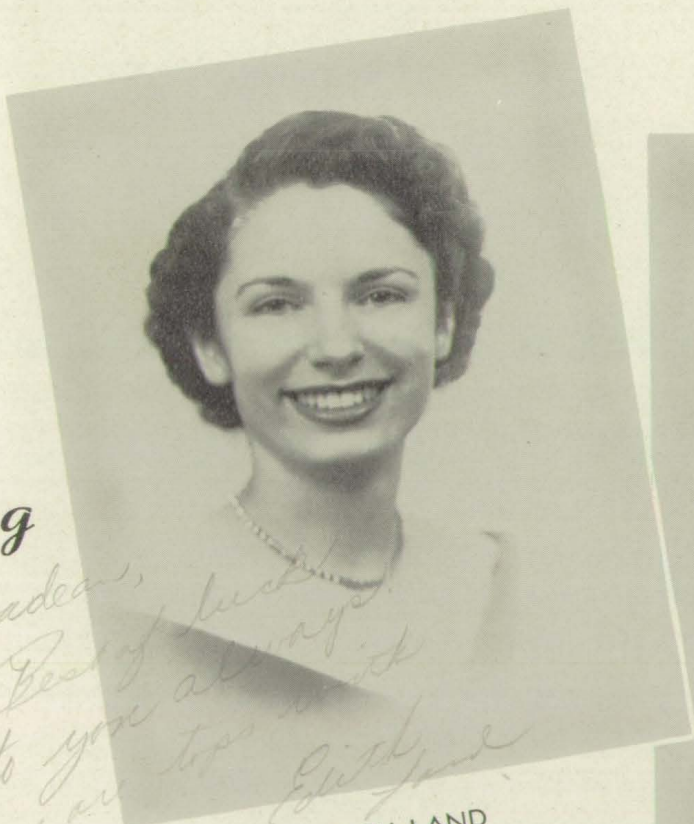 g
adean,
Best of luck
to you always.
are tops with
Edith
Land
LAND